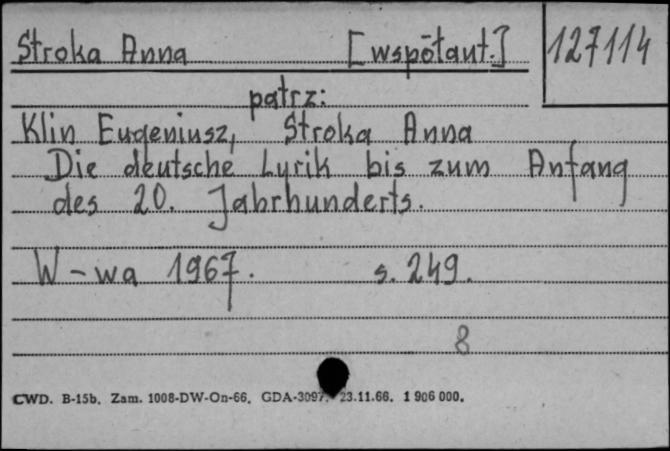 Stroka Anna [wspōłaut.] 127114
patrz:
Klin Eugeniusz, Stroka Anna
Die deutsche Lyrik bis zum Anfang
des 20. Jahrhunderts.
W-wa 1967. s. 249.
8
CWD. B-15b. Zam. 1008-DW-On-66. GDA-3097. 23.11.66. 1 906 000.